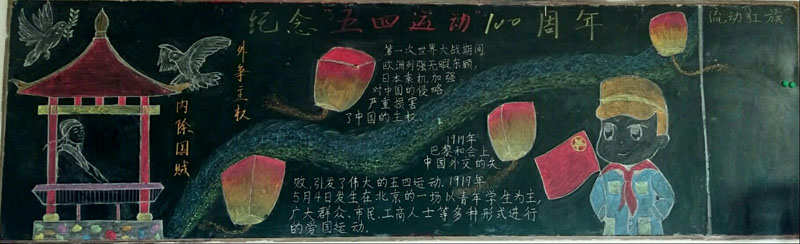 纪念"五四运动"100周年
流动红旗
外争主权
内除国贼
第一次世界大战期间
欧洲列强无暇东顾,
日本乘机加强
对中国的侵略,
严重损害
了中国的主权。
1919年
巴黎和会上
中国外交的失
败,引发了伟大的五四运动。1919年
5月4日发生在北京的一场以青年学生为主,
广大群众、市民、工商人士等多种形式进行
的爱国运动。